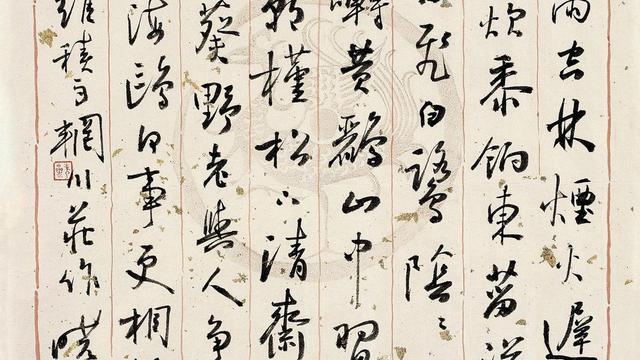 雨空林煙火遲
炊黍餉東菑漠
飛白鷺陰〻
囀黃鸝山中習
朝槿松下清齋
葵野老與人爭
海鷗何事更相
維積雨輞川莊作 曉